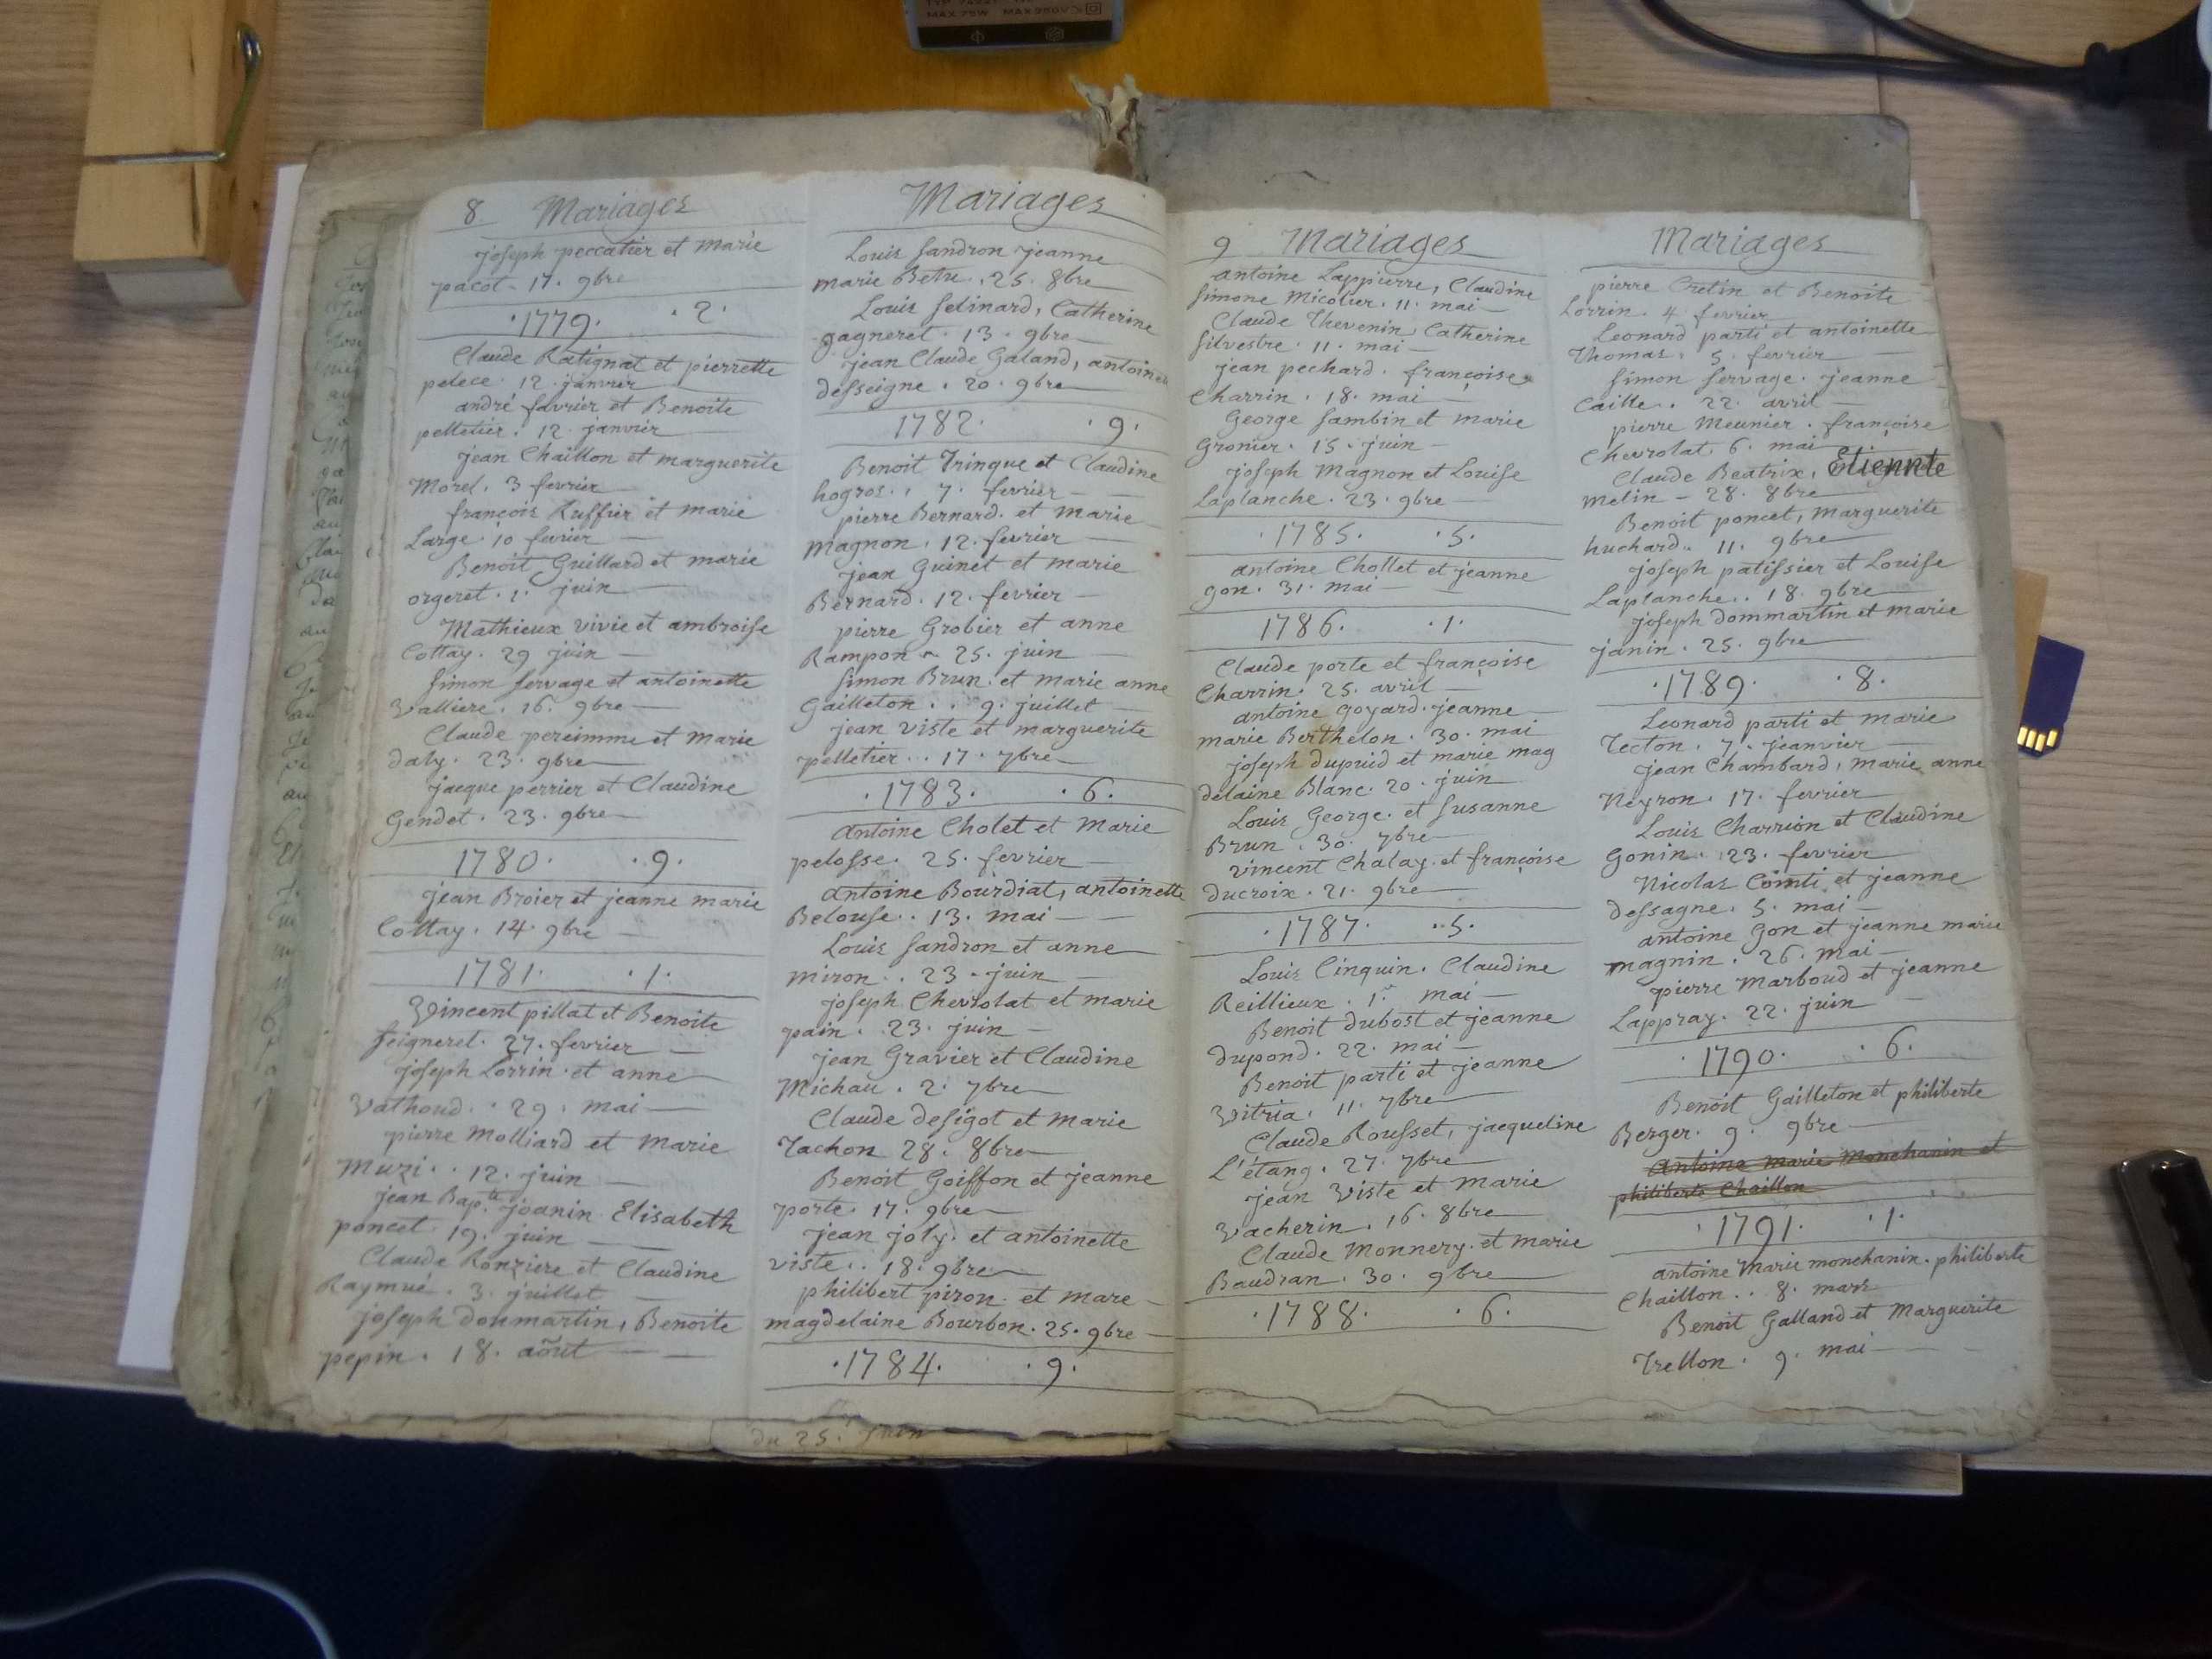 8 Mariages
joseph peccatier et marie
pacot. 17. 9bre
1779. 2.
Claude Ratignat et pierrette
pelece. 12. janvier
andré favrier et Benoite
pelletier. 12. janvier
jean Chaillon et marguerite
Morel. 3 fevrier
françois Ruffier et marie
Large. 10 fevrier
Benoit Guillard et marie
orgeret. 1. juin
Mathieux vivie et ambroise
Cottay. 29 juin
simon servage et antoinette
valliere. 16. 9bre
Claude pereimme et Marie
daly. 23. 9bre
jacque perrier et Claudine
Gendet. 23. 9bre
1780. 9.
jean Broier et jeanne marie
Cottay. 14. 9bre
1781. 1.
Vincent pillat et Benoite
feigneret. 27. fevrier
joseph Lorrin. et anne
vathoud. 29. mai
pierre Molliard et Marie
Muzi. 12. juin
jean Bap.te joanin Elisabeth
poncet. 19. juin
Claude Ronziere et Claudine
Raymué. 3. juillet
joseph donmartin, Benoite
pepin. 18. août
Mariages
Louis sandron jeanne
marie Betu. 25. 8bre
Louis selinard, Catherine
gagneret. 13. 9bre
jean Claude Galand, antoine
desseigne. 20. 9bre
1782. 9.
Benoit Trinque et Claudine
hogros. 7. fevrier
pierre Bernard. et marie
Magnon. 12. fevrier
jean Guinet et marie
Bernard. 12. fevrier
pierre Grobier et anne
Rampon. 25. juin
simon Brun. et marie anne
Gailleton. 9. juillet
jean viste et marguerite
pelletier. 17. 7bre
1783. 6.
antoine Cholet et marie
pelosse. 25. fevrier
antoine Bourdiat, antoinette
Belouse. 13. mai
Louis sandron et anne
miron. 23. juin
joseph Chevrolat et marie
pain. 23. juin
jean Gravier et Claudine
Michau. 2. 7bre
Claude desigot et marie
Tachon 28. 8bre
Benoit Goiffon et jeanne
porte. 17. 9bre
jean joly. et antoinette
viste. 18. 9bre
philibert piron. et mare
magdelaine Bourbon. 25. 9bre
1784. 9.
du 25. juin
9 Mariages
antoine Lappierre, Claudine
simone Micolier. 11. mai
Claude Thevenin, Catherine
silvestre. 11. mai
jean pechard. françoise
Charrin. 18. mai
George sambin et marie
Gronier. 15. juin
joseph Magnon et Louise
Laplanche. 23. 9bre
1785. 5.
antoine Chollet et jeanne
gon. 31. mai
1786. 1.
Claude porte et françoise
Charrin. 25. avril
antoine goyard. jeanne
marie Berthelon. 30. mai
joseph dupuid et marie mag
delaine Blanc. 20. juin
Louis George. et susanne
Brun. 30. 7bre
vincent Chalay. et françoise
ducroix. 21. 9bre
1787. 5.
Louis Cinquin. Claudine
Reillieux. 1.r mai
Benoit dubost et jeanne
dupond. 22. mai
Benoit parti et jeanne
Vitria. 11. 7bre
Claude Rousset, jacqueline
L'étang. 27. 7bre
jean Viste et marie
Vacherin. 16. 8bre
Claude Monnery. et marie
Baudran. 30. 9bre
1788. 6.
Mariages
pierre Cretin et Benoite
Lorrin. 4 fevrier
Leonard parti et antoinette
Thomas. 5. fevrier
simon servage. jeanne
Caille. 22. avril
pierre Meunier. françoise
Chevrolat. 6. mai
Claude Beatrix, Etiennte
melin - 28. 8bre
Benoit poncet, marguerite
huchard. 11. 9bre
joseph patissier et Louise
Laplanche. 18. 9bre
joseph dommartin et marie
janin. 25. 9bre
1789. 8.
Leonard parti et marie
Tecton. 7. jeanvier
jean Chambard, marie anne
Neyron. 17. fevrier
Louis Charrion et Claudine
Gonin. 23. fevrier
Nicolas Comti et jeanne
dessagne. 5. mai
antoine Gon et jeanne marie
magnin. 26. mai
pierre Marboud et jeanne
Lappray. 22. juin
1790. 6.
Benoit Gailleton et philiberte
Berger. 9. 9bre
Antoine Marie Monchanin et
philiberte Chaillon
1791. 1.
antoine Marie monchanin. philiberte
Chaillon. 8. mars
Benoit Galland et Marguerite
Trellon. 9. mai